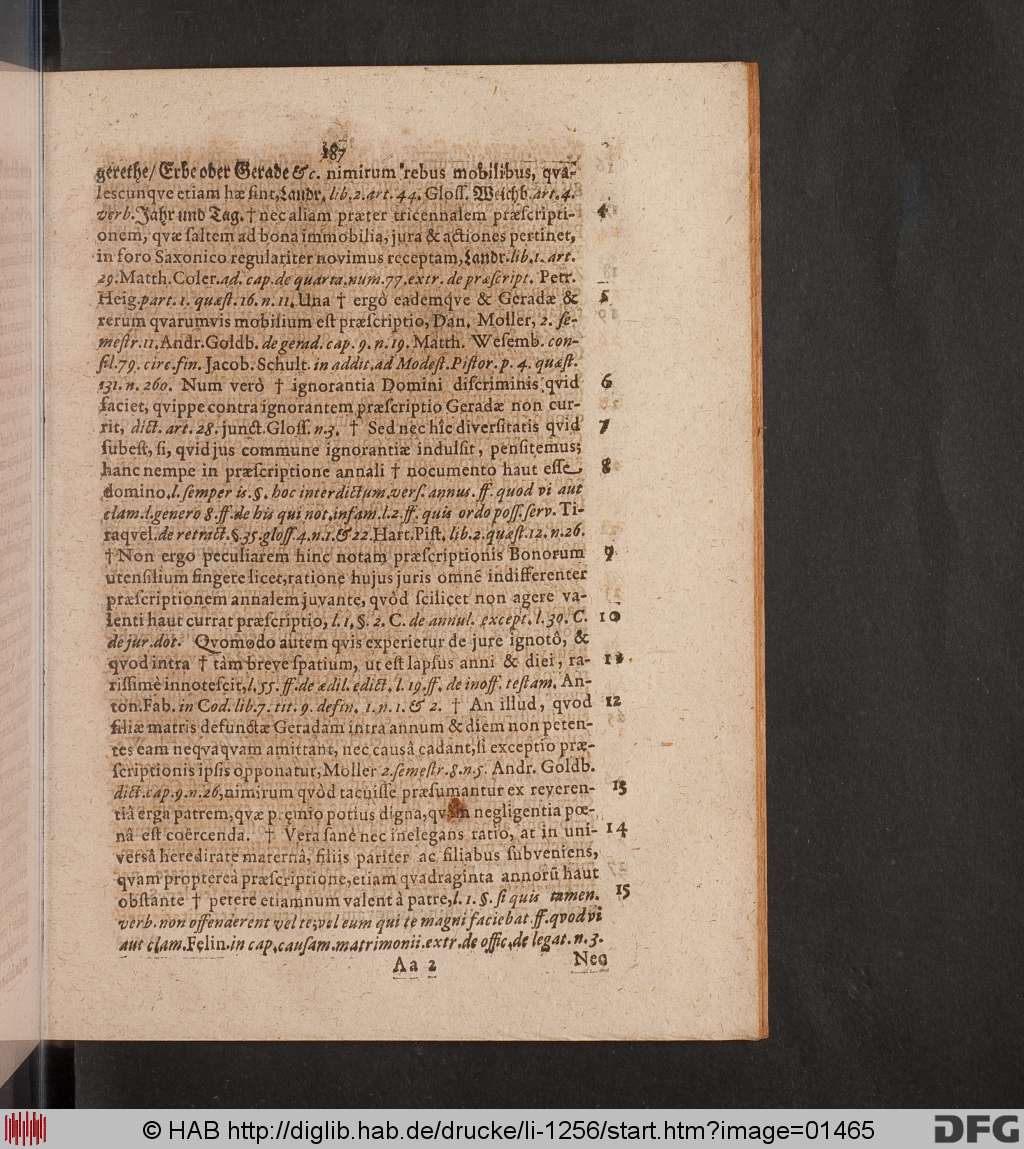 187
gerethe/ Erbe oder Gerade &c. nimirum rebus mobilibus, qva-
lescunqve etiam hæ sint, Landr. lib. 2. art. 44. Gloss. Weichb. art. 4.
verb. Jahr und Tag. † nec aliam præter tricennalem præscripti- 4
onem, qvæ saltem ad bona immobilia, jura & actiones pertinet,
in foro Saxonico regulariter novimus receptam, Landr. lib. 1. art.
29. Matth. Coler. ad. cap. de quarta. num. 77. extr. de præscript. Petr.
Heig. part. 1. quæst. 16. n. 11. Una † ergò eademqve & Geradæ & 5
rerum qvarumvis mobilium est præscriptio, Dan. Moller, 2. se-
mestr. 11. Andr. Goldb. de gerad. cap. 9. n. 19. Matth. Wesemb. con-
sil. 79. circ. fin. Jacob. Schult. in addit. ad Modest. Pistor. p. 4. quæst.
131. n. 260. Num verò † ignorantia Domini discriminis qvid 6
faciet, qvippe contra ignorantem præscriptio Geradæ non cur-
rit, dict. art. 28. junct. Gloss. n. 3. † Sed nec hîc diversitatis qvid 7
subest, si, qvid jus commune ignorantiæ indulsit, pensitemus;
hanc nempe in præscriptione annali † nocumento haut esse 8
domino, l. semper is. §. hoc interdictum. vers. annus. ff. quod vi aut
clam. l. genero 8. ff. de his qui not. infam. l. 2. ff. quis ordo poss. serv. Ti-
raqvel. de retract. §. 35. gloss. 4. n. 1. & 22. Hart. Pist. lib. 2. quæst. 12. n. 26.
† Non ergo peculiarem hinc notam præscriptionis Bonorum 9
utensilium fingere licet, ratione hujus juris omnē indifferenter
præscriptionem annalem juvante, qvòd scilicet non agere va-
lenti haut currat præscriptio, l. 1. §. 2. C. de annul. except. l. 30. C. 10
de jur. dot. Qvomodo autem qvis experietur de jure ignotô, &
qvod intra † tàm breve spatium, ut est lapsus anni & diei, ra- 11
rissimè innotescit, l. 55. ff. de ædil. edict. l. 19. ff. de inoff. testam. An-
ton. Fab. in Cod. lib. 7. tit. 9. defin. 1. n. 1. & 2. † An illud, qvod 12
filiæ matris defunctæ Geradam intra annum & diem non peten-
tes eam neqvaqvam amittant, nec causâ cadant, si exceptio præ-
scriptionis ipsis opponatur, Moller 2. semestr. 8. n. 5. Andr. Goldb.
dict. cap. 9. n. 26, nimirum qvòd tacuisse præsumantur ex reveren- 13
tiâ erga patrem, qvæ præmio potius digna, qvàm negligentia pœ-
nâ est coërcenda. † Vera sanè nec inelegans ratio, at in uni- 14
versâ hereditate maternâ, filiis pariter ac filiabus subveniens,
qvam propterea præscriptione, etiam qvadraginta annorū haut
obstante † petere etiamnum valent à patre, l. 1. §. si quis tamen. 15
verb. non offenderent vel te, vel eum qui te magni faciebat ff. qvod vi
aut clam. Felin. in cap. causam. matrimonii. extr. de offic. de legat. n. 3.
Aa 2 Neo
© HAB http://diglib.hab.de/drucke/li-1256/start.htm?image=01465
DFG